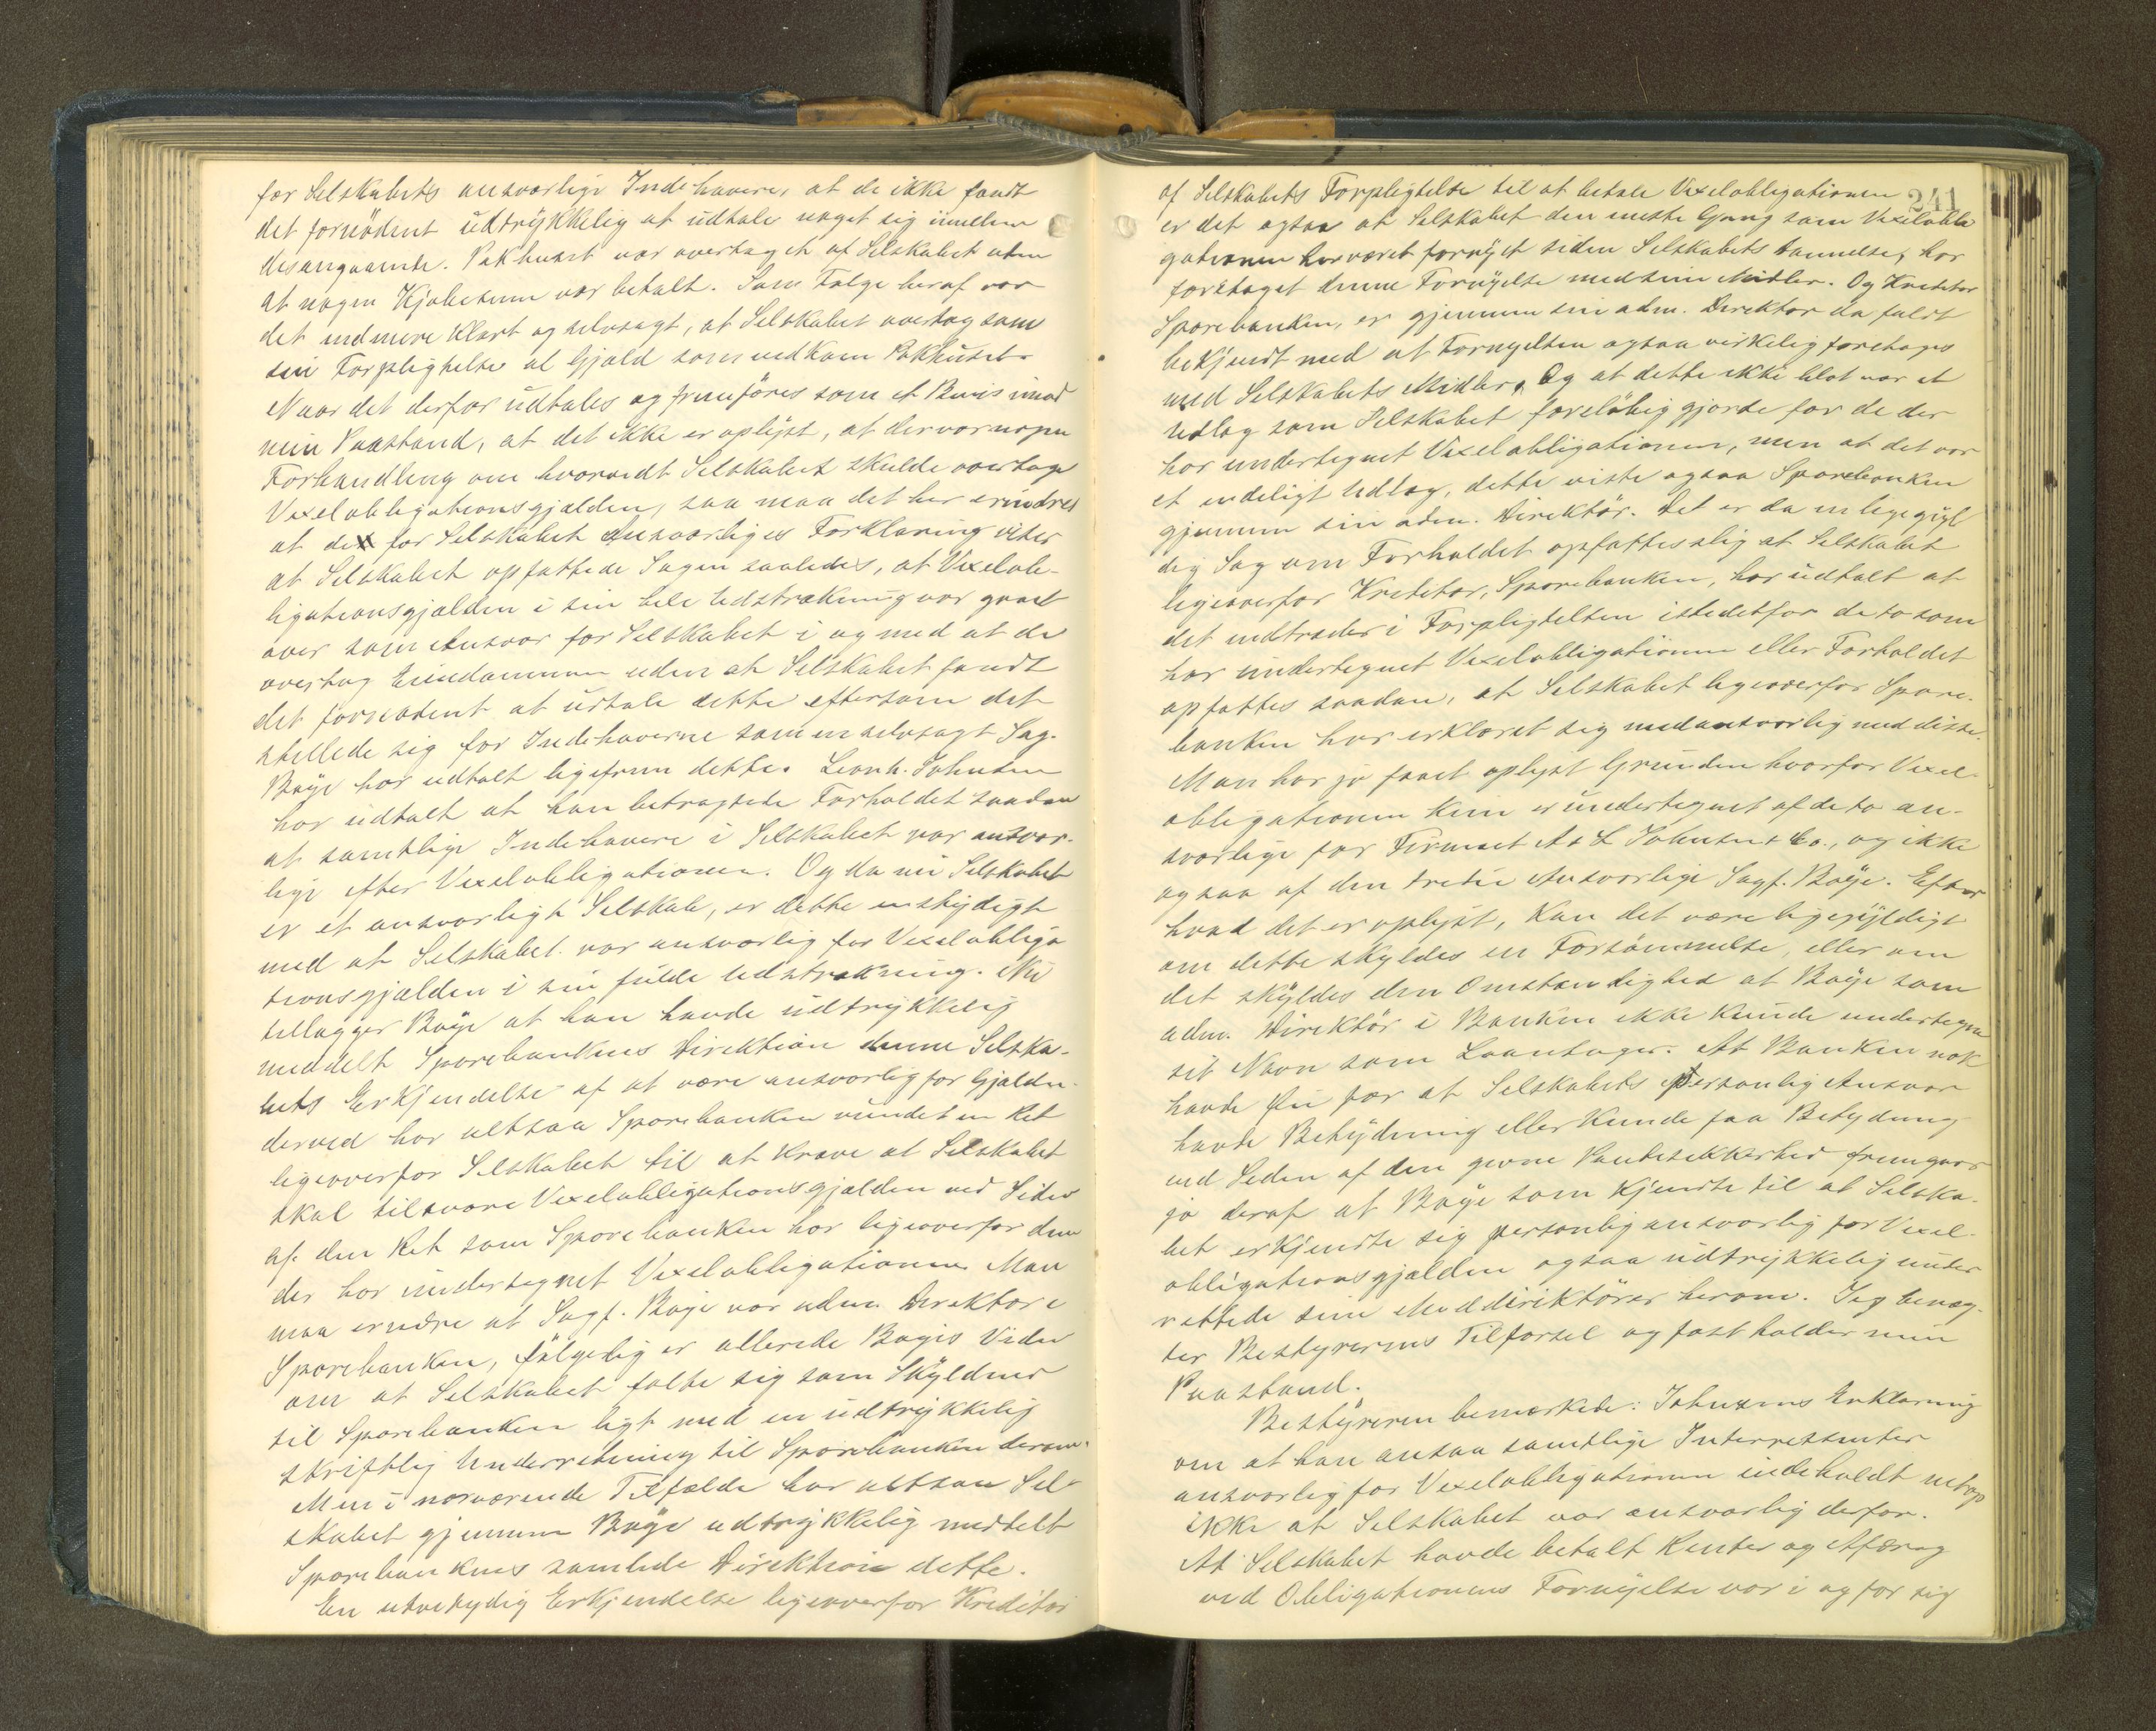 for Selskabets ansvarlige Indehavere, at de ikke fandt
det fornødent udtrykkelig at udtale noget sig imellem
desangaaende. Pakhuset var overtaget af Selskabet uden
at nogen Kjøbesum var betalt. Som Følge heraf var
det endmere klart og selvsagt, at Selskabet overtog som
sin Forpligtelse al Gjæld som vedkom Pakhuset.
Naar det derfor udtales og fremføres som et Bevis imod
min Paastand, at det ikke er oplyst, at der var nogen
Forhandling om hvorvidt Selskabet skulde overtage
Vexelobligationsgjælden, saa maa det her erindres
at de for Selskabet Ansvarliges Forklaring viser
at Selskabet opfattede Sagen saaledes, at Vexelob-
ligationsgjælden i sin hele Udstrækning var gaaet
over som Ansvar for Selskabet i og med at de
overtog Eiendommen uden at Selskabet fandt
det fornødent at udtale dette eftersom det
stillede sig for Indehaverne som en selvsagt Sag.
Bøye har udtalt ligefrem dette. Leonh. Johnsen
har udtalt at han betragtede Forholdet saadan
at samtlige Indehavere i Selskabet var ansvar-
lige efter Vexelobligationen. Og da nu Selskabet
er et ansvarligt Selskab, er dette enstydigt
med at Selskabet var ansvarlig for Vexelobliga
tionsgjælden i sin fulde Udstrækning. Nu
tillægger Bøye at han havde udtrykkelig
meddelt Sparebankens Direktion denne Selska-
bets Erkjendelse af at være ansvarlig for Gjælden.
derved har altsaa Sparebanken vundet en Ret
ligeoverfor Selskabet til at kræve at Selskabet
skal tilsvare Vexelobligationsgjælden ved Siden
af den Ret som Sparebanken har ligeoverfor dem
der har undertegnet Vexelobligationen. Man
maa erindre at Sagf. Bøye var adm. Direktør i
Sparebanken, følgelig er allerede Bøyes Viden
om at Selskabet følte sig som Skyldner
til Sparebanken ligt med en udtrykkelig
skriftlig Underretning til Sparebanken derom.
Men i nærværende Tilfælde har altsaa Sel-
skabet gjennem Bøye udtrykkelig meddelt
Sparebankens samlede Direktion dette.
En utvetydig Erkjendelse ligeoverfor Kreditor
241
af Selskabets Forpligtelse til at betale Vexelobligationen
er det ogsaa at Selskabet den eneste Gang som Vexelobli
gationen har været fornyet siden Selskabets Dannelse, har
foretaget denne Fornyelse med sine Midler. Og Kreditor
Sparebanken, er gjennem sin adm. Direktør da fuldt
bekjendt med at Fornyelsen ogsaa virkelig foretages
med Selskabets Midler. Og at dette ikke blot var et
Udlæg som Selskabet foreløbig gjorde for de der
har undertegnet Vexelobligationen, men at det var
et endeligt Udlæg, dette viste ogsaa Sparebanken
gjennem sin adm. Direktør. Det er da en ligegyl
dig Sag om Forholdet opfattes slig at Selskabet
ligeoverfor Kreditor, Sparebanken, har udtalt at
det indtræder i Forpligtelsen istedetfor de to som
har undertegnet Vexelobligationen eller Forholdet
opfattes saadan, at Selskabet ligeoverfor Spare-
banken har erklæret sig medansvarlig med disse.
Man har jo faaet oplyst Grunden hvorfor Vexel-
obligationen kun er undertegnet af de to an-
svarlige for Firmaet A & L Johnsen & Co., og ikke
ogsaa af den tredie Ansvarlige Sagf. Bøye. Efter
hvad det er oplyst, kan det være ligegyldigt
om dette skyldes en Forsømmelse, eller om
det skyldes den Omstændighed at Bøye som
adm. Direktør i Banken ikke kunde undertegne
sit Navn som Laantager. At Banken nok
havde Øie for at Selskabets personlig Ansvar
havde Betydning eller kunde faa Betydning
ved Siden af den givne Pantesikkerhed fremgaar
jo deraf at Bøye som kjendte til at Selska-
bet erkjendte sig personlig ansvarlig for Vexel-
obligationsgjælden ogsaa udtrykkelig under
rettede sine Meddirektører herom. Jeg benæg-
ter Bestyrerens Tilførsel og fastholder min
Paastand.
Bestyreren bemærkede: Johnsens Erklæring
om at han ansaa samtlige Interessenter
ansvarlig for Vexelobligationen indeholdt netop
ikke at Selskabet var ansvarlig derfor.
At Selskabet havde betalt Renter og Afdrag
ved Obligationens Fornyelse var i og for sig